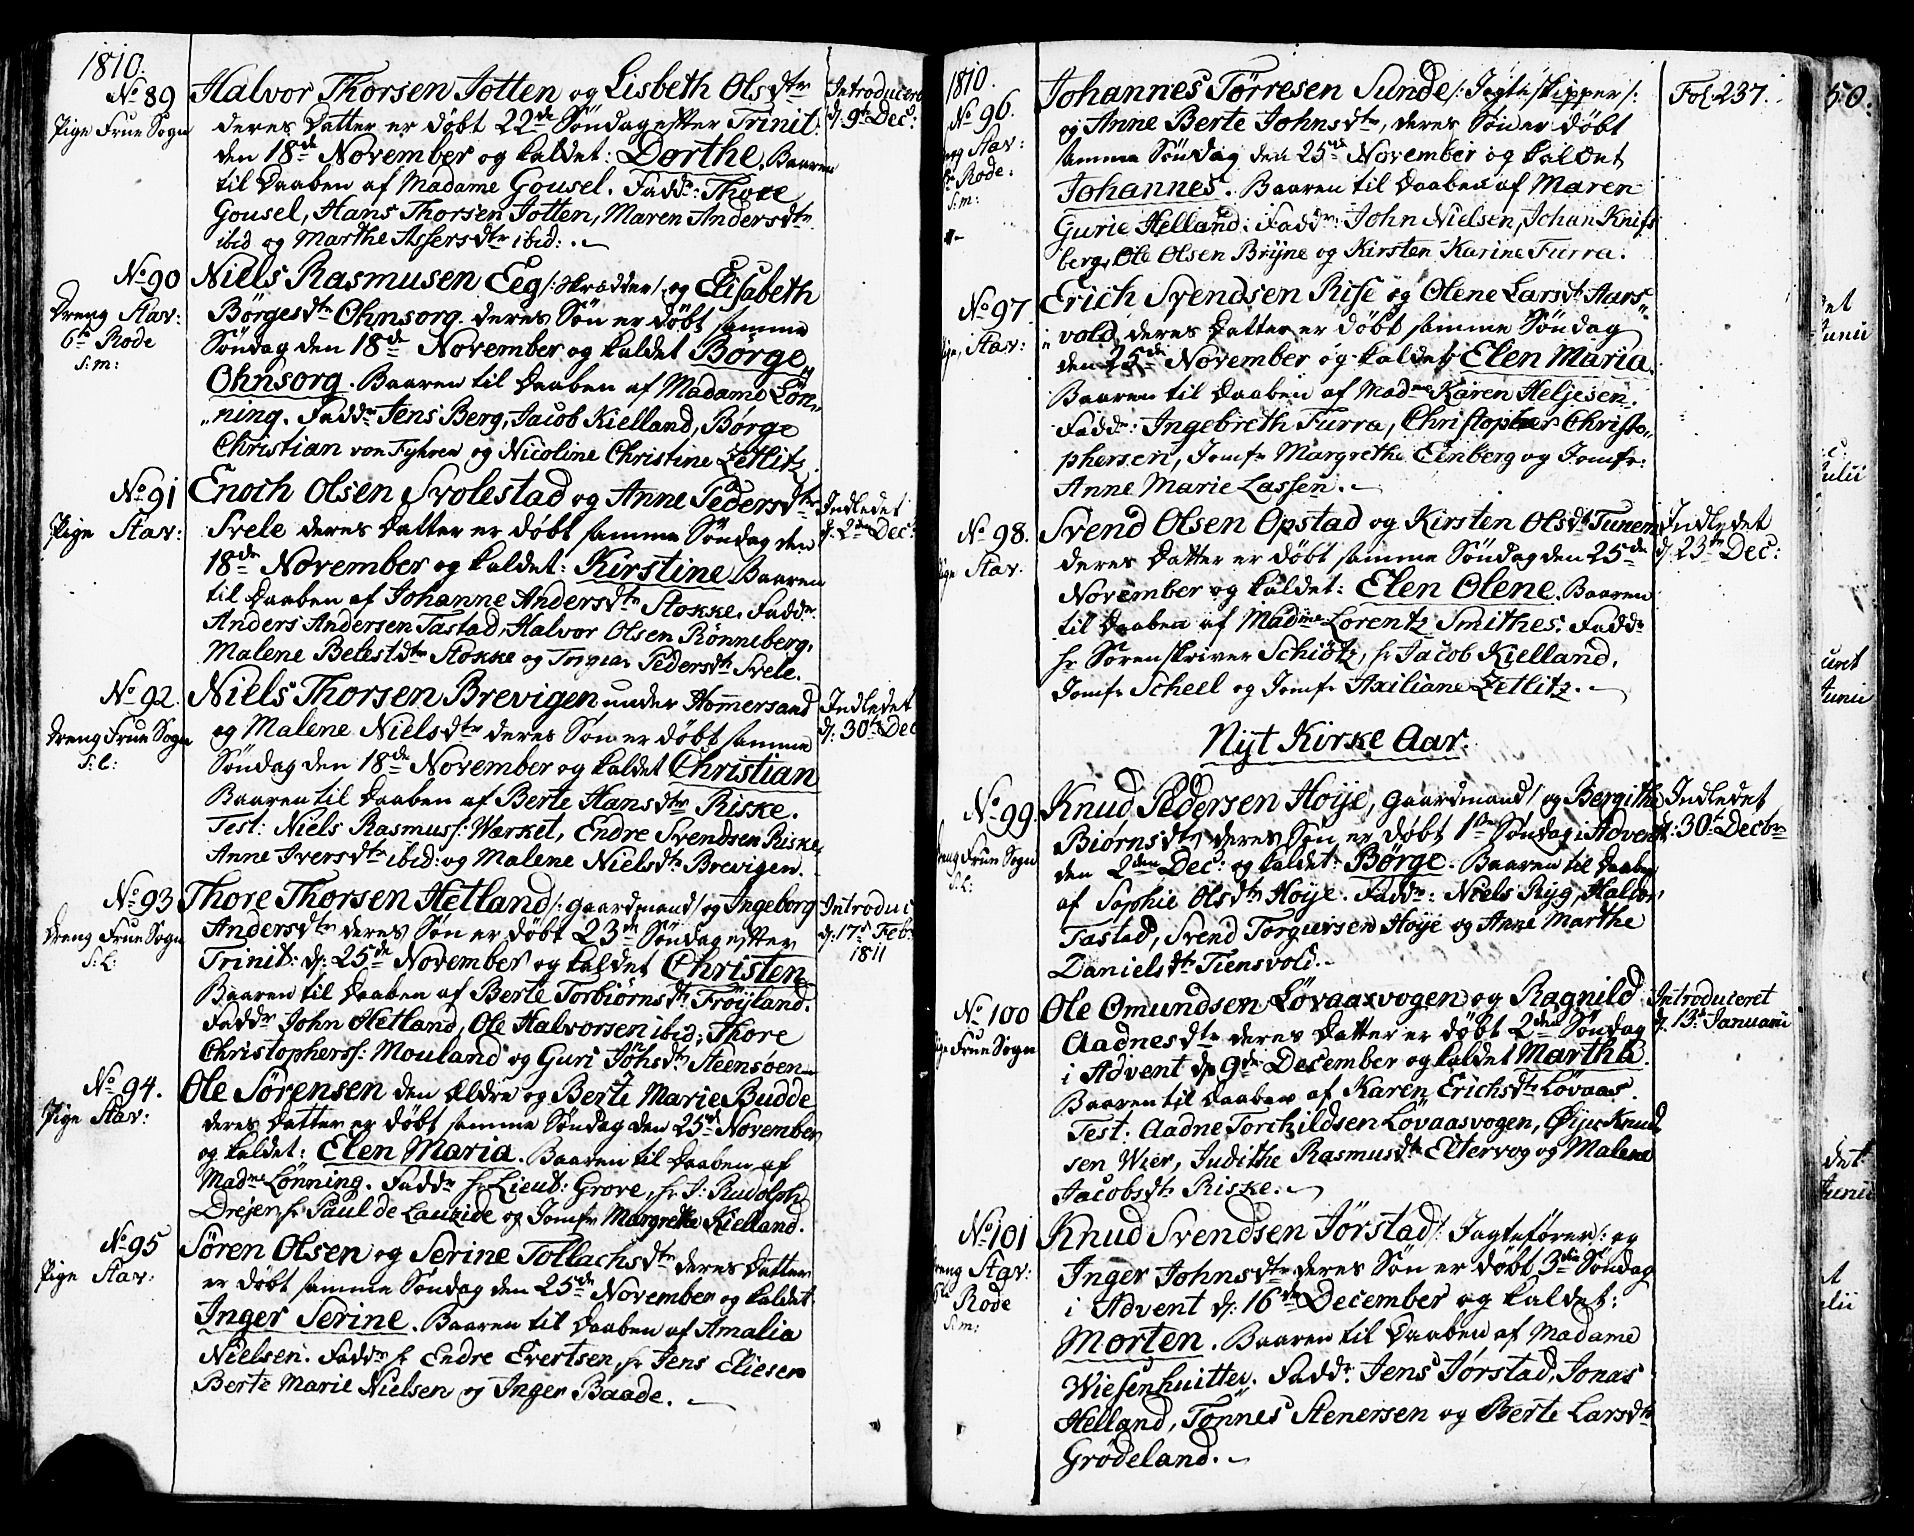 1810.
No 89
Pige Frue Sogn
Halvor Thorsen Jotten og Lisbeth Olsdtr
deres Datter er døbt 22de Søndag efter Trinit:
den 18de November og kaldet: Dorthe. Baaren
til Daaben af Madame Gousel. Faddr: Thore
Gousel, Hans Thorsen Jotten, Maren Andersdtr
ibid og Marthe Assersdtr ibid:.
Introduceret
d: 9de Dec:
No 90
Dreng Stav:
6te Rode
S: m:
Niels Rasmusen Eeg /: Skrædder / og Elisabeth
Børgesdtr Ohnsorg. deres Søn er døbt samme
Søndag den 18de November og kaldet Børge
Ohnsorg. Baaren til Daaben af Madame Løn„
„ning. Faddr Jens Berg, Jacob Kielland, Børge
Christian von Fyhren og Nicoline Christine Zetlitz.
No 91
Pige Stav:
Enoch Olsen Svolestad og Anne Pedersdtr
Svele deres Datter er døbt samme Søndag den
18de November og kaldet: Kirstine Baaren
til Daaben af Johanne Andersdtr Stokke. Faddr
Anders Andersen Tastad, Halvor Olsen Rönneberg,
Malene Belestdtr Stokke og Pedersdtr Svele.
Indledet
d: 2den Dec:
No 92.
Dreng Frue Sogn
S: l:
Niels Thorsen Brevigen under Hommersand
og Malene Nielsdtr deres Søn er døbt samme
Søndag den 18de November og kaldet Christian
Baaren til Daaben af Berte Hansdtr Riske.
Test: Niels Rasmus/: Wærket, Endre Svendsen Riske,
Anne Iversdtr ibid: og Malene Nielsdtr Brevigen.
Indledet
d: 30te Dec
No 93
Dreng Frue Sogn
S: l:
Thore Thorsen Hetland /: gaardmand / og Ingeborg
Andersdtr deres Søn er døbt 23de Søndag efter
Trinit: d: 25de November og kaldet Christen
Baaren til Daaben af Berte Torbiørnsdtr Frøyland.
Faddr John Hetland, Ole Halvorsen ibid, Thore
Christophers/: Mouland og Guri Johsdtr Steensøen
Introduc
d: 17de Feb:
1811
No 94.
Pige Stav:
Ole Sørensen den Ældre og Berte Marie Budde
deres Datter er døbt samme Søndag den 25de November
og kaldet: Elen Maria. Baaren til Daaben af
Madme Lønning. Faddr hr Lieut: Grove, hr J: Rudolph
Dreyer, hr Paul de og Jomfr Margrethe Kielland.
No 95
Pige Stav:
Søren Olsen og Serine Tollachsdtr deres Datter
er døbt samme Søndag den 25de November og kaldet
Inger Serine. Baaren til Daaben af Amalia
Nielsen. Faddr hr Endre Evertsen, hr Jens Eliesen
Berte Marie Nielsen og Inger Baade.
1810.
No 96.
Stav:
Rode:
S: m:
Johannes Tørresen Sunde /: Jagteskipper /:
og Anne Berte Johnsdtr, deres Søn er døbt
samme Søndag den 25de November og kaldet
Johannes. Baaren til Daaben af Maren
Gurie Helland: Faddr: John Nielsen, Johan Knifs
berg, Ole Olsen Bryne og Kirsten Karine Furra.
Fol 237.
50.
No 97
Stav:
Erich Svendsen Rise og Olene Larsdtr Aars„
„vold, deres Datter er døbt samme Søndag
den 25de November og kaldet: Elen Maria.
Baaren til Daaben af Madme Karen Heljesen.
Faddr: Ingebreth Furra, Christopher Christo„
phersen, Jomfr Margrethe Einberg og Jomfr:
Anne Marie Lassen.
No 98.
Stav:
Svend Olsen Opstad og Kirsten Olsdtr Tunem
deres Datter er døbt samme Søndag den 25de
November og kaldet: Elen Olene. Baaren
til Daaben af Madme Lorentz Smithes. Faddr
hr Sørenskriver Schiøtz, hr Jacob Kielland,
Jomfr Scheel og Jomfr Axiliane Zetlitz.
Indledet
d: 23de Dec:
Nyt Kirke Aar.
No 99
Dreng Frue Sogn
S: l:
Knud Pedersen Høye, gaardmand / og Bergithe
Biørnsdtr, deres Søn er døbt 1ste Søndag i Advent
den 2den Dec: og kaldet: Børge. Baaren til Daaben
af Sophie Olsdtr Høye. Faddr: Niels Ryg, Halvor
Tastad, Svend Torgersen Høye og Anne Marthe
Danielsdtr Tiensvold.
Indledet
d: 30te Decbr
No 100
Pige Frue Sogn
Ole Omundsen Løvaasvogen og Ragnild
Aadnesdtr deres Datter er døbt 2den Søndag
i Advent d: 9de December og kaldet Martha.
Baaren til Daaben af Karen Erichsdtr Løvaas.
Test: Aadne Torchildsen Løvaasvogen, Knud
sen Wier, Judithe Rasmusdtr Eltervog og Malene
Jacobsdtr Riske.
Introduceret
d. 13de Januarii
No 101
Dreng Stav:
Rode
S: m:
Knud Svendsen Jørstad /: Jagtefører /: og
Inger Johnsdtr deres Søn er døbt 3die Søndag
i Advent d: 16de December og kaldet:
Morten. Baaren til Daaben af Madame
Wiesenhuitter. Faddr: Jens Jørstad, Jonas
Helland, Tønnes Stenersen og Berte Larsdtr
Grødeland.